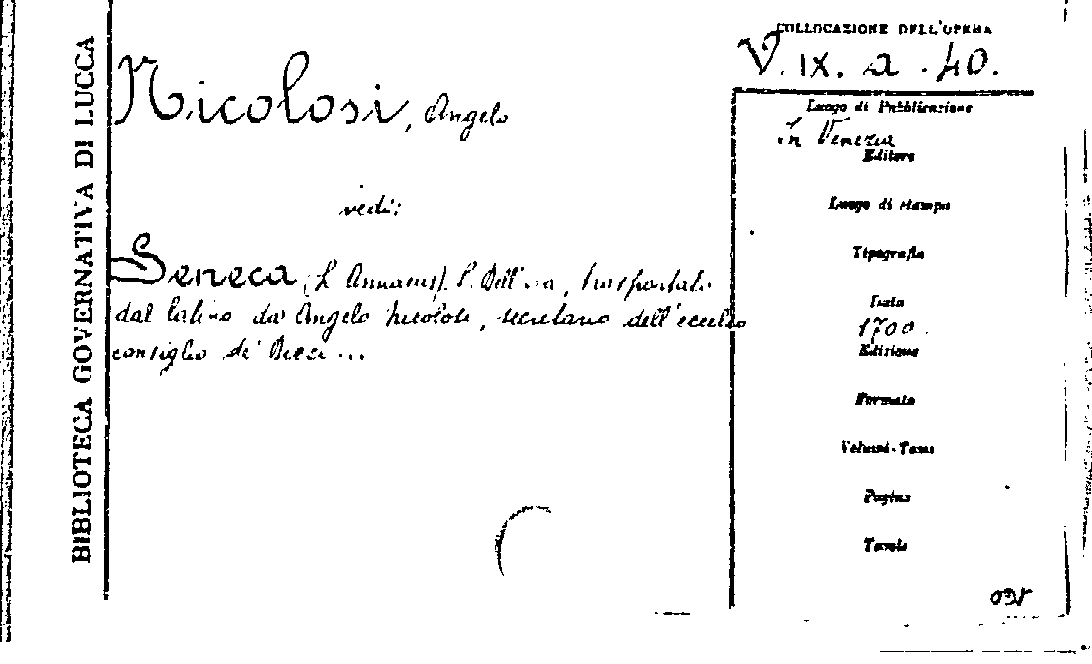 BIBLIOTECA GOVERNATIVA DI LUCCA
Nicolosi, Angelo
vedi:
Seneca (L. Annaeus). Dell'ira, trasportato
dal latino da Angelo Nicolosi, secretario dell'eccelso
consiglio di Dieci ...
COLLOCAZIONE DELL'OPERA
V. IX. a. 40.
Luogo di Pubblicazione
In Venezia
Editore
Luogo di stampa
Tipografia
Data
1700.
Edizione
Formato
Volumi-Tomi
Pagine
Tavole